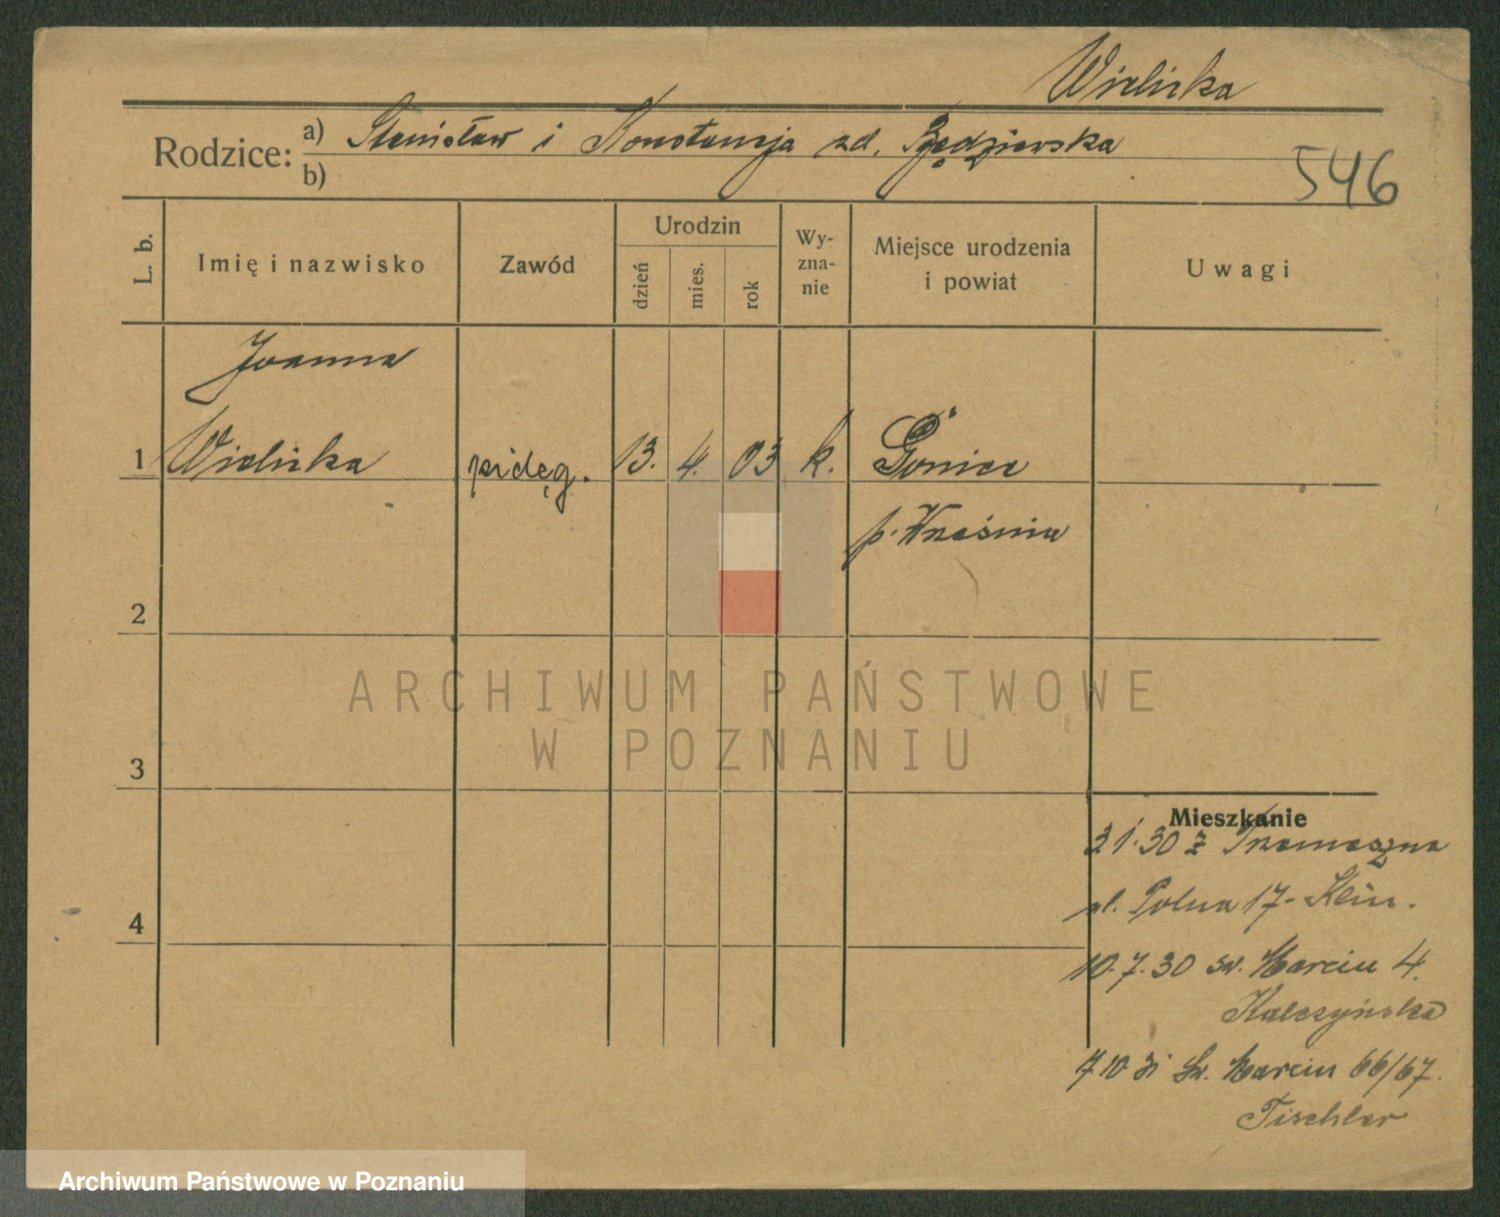 Wielicka
Rodzice: a) Stanisław i Konstancja zd. Będzierska
b)
546
L. b.
Imię i nazwisko
Zawód
Urodzin
dzień
mies.
rok
Wy-
zna-
nie
Miejsce urodzenia
i powiat
Uwagi
Joanna
1 Wielicka pielęg. 13. 4. 03 k. Gonice
p. Września
2
3
4
ARCHIWUM PAŃSTWOWE
W POZNANIU
Mieszkanie
3 1. 30 z Trzemeszna
ul. Polna 17 - Klein.
10. 7. 30 św. Marcin 4.
Kulczyńska
7 10 31 Św. Marcin 66/67.
Tischler
Archiwum Państwowe w Poznaniu